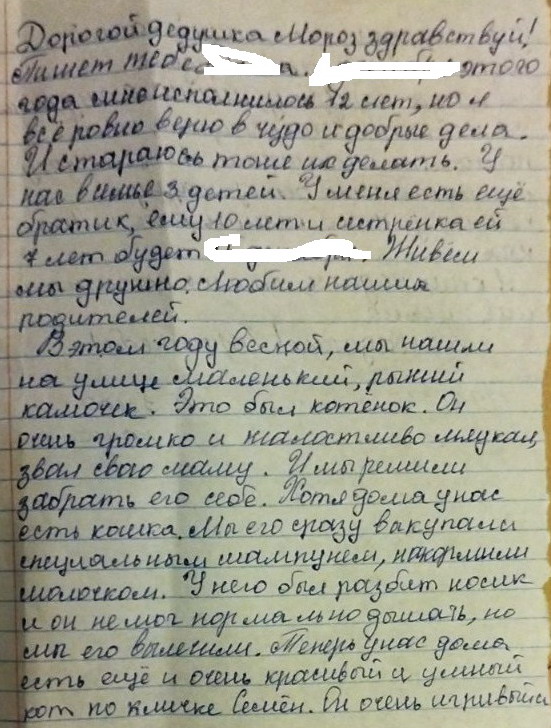 Дорогой дедушка Мороз здравствуй!
Пишет тебе а. этого
года мне исполнилось 12 лет, но я
всё ровно верю в чудо и добрые дела.
И стараюсь тоже их делать. У
нас в симье 3 детей. У меня есть ещё
братик, ему 10 лет и систрёнка ей
7 лет будет Живём
мы дружно. Любим наших
родителей.
В этом году весной, мы нашли
на улице маленький, рыжий
камочек. Это был котёнок. Он
очень громко и жалостливо мяукал,
звал свою маму. И мы решили
забрать его себе. Хотя дома у нас
есть кошка. Мы его сразу выкупали
специальным шампунем, накормили
молочком. У него был разбит носик
и он не мог нормально дышать, но
мы его вылечили. Теперь у нас дома
есть ещё и очень красивый и умный
кот по кличке Семён. Он очень игривый и